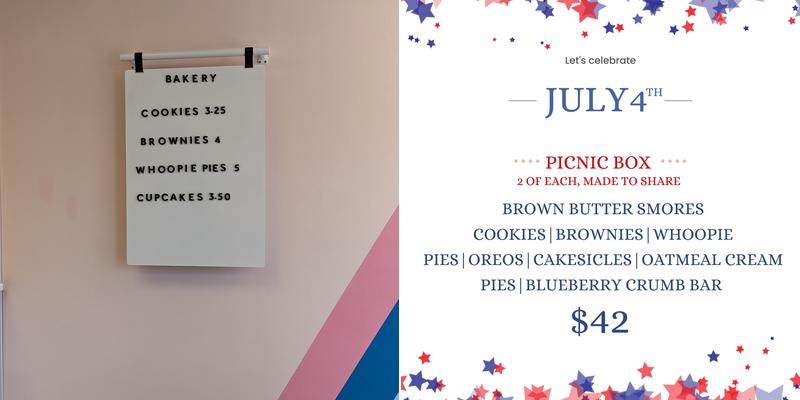 BAKERY
COOKIES 3.25
BROWNIES 4
WHOOPIE PIES 5
CUPCAKES 3.50
Let's celebrate
JULY4TH
PICNIC BOX
2 OF EACH, MADE TO SHARE
BROWN BUTTER SMORES
COOKIES | BROWNIES | WHOOPIE
PIES | OREOS | CAKESICLES | OATMEAL CREAM
PIES | BLUEBERRY CRUMB BAR
$42